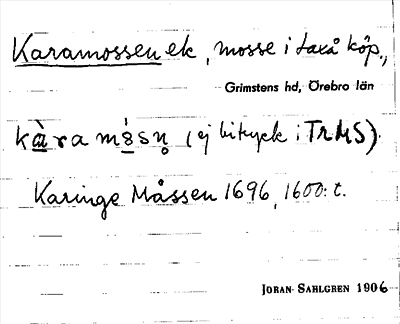 Karamossen ek, mosse i Laxå köp.,
Grimstens hd, Örebro län
kàra mósn̥ (ej bitryck i TrMS).
Karinge Måssen 1696, 1600:t.
JÖRAN SAHLGREN 1906